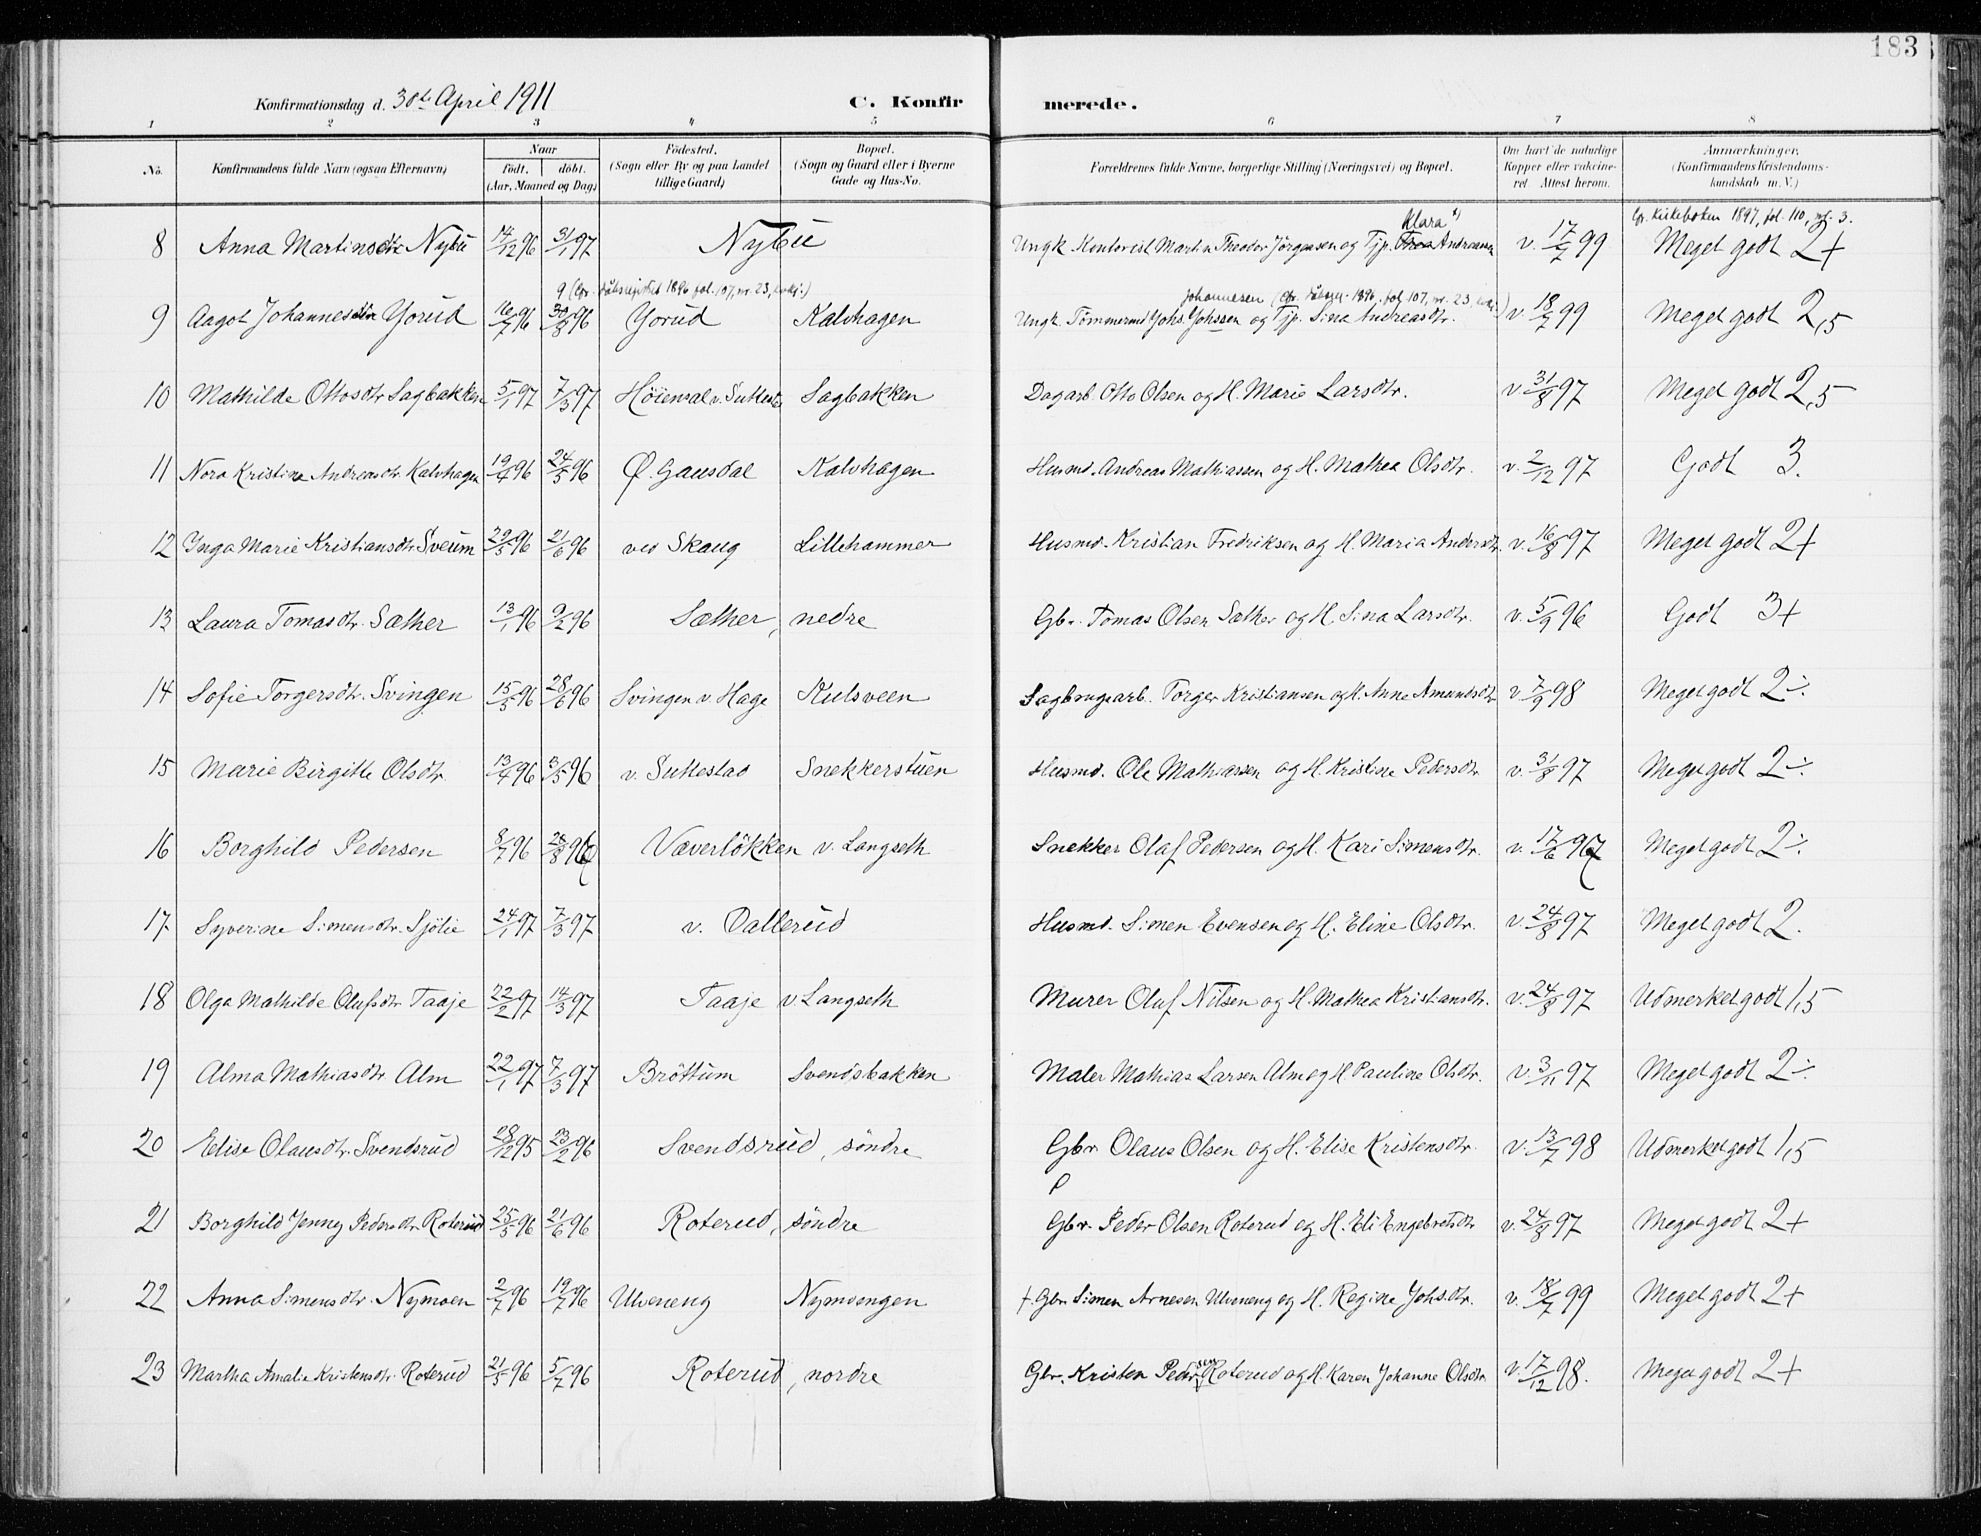 183
Konfirmationsdag d. 30te April 1911 C. Konfirmerede.
1 2 3 4 5 6 7 8
No. Konfirmandens fulde Navn (ogsaa Efternavn) Naar født. døbt. (Aar, Maaned og Dag) Fødested. (Sogn eller By og paa Landet tillige Gaard) Bopæl. (Sogn og Gaard eller i Byerne Gade og Hus-No. Forældrenes fulde Navne, borgerlige Stilling (Næringsvei) og Bopæl. Om havt de naturlige Kopper eller vaccineret Attest herom. Anmærkninger. (Konfirmandens Kristendomskundskab m. V.)
Klara x) Cfr. Kirkeboken 1897, fol. 110, nr. 3.
8 Anna Martinsdtr Nybu 14/12 96 31/1 97 Nybu Ungk. Kontorist Martin Theodor Jørgensen og Tjp. Thea Andreasen v. 17/7 99 Meget godt 2+
9 (Cfr. dåbsregistret 1896 fol. 107, nr. 23,) Johannesen (Cfr. 1896, fol. 107, nr. 23,)
9 Aagot Johannesdtr Jorud 16/7 96 30/8 96 Jorud Kalvhagen Ungk. Tömmermd Johs. Johssen og Tjp. Sina Andreasdtr. v. 18/7 99 Meget godt 2,5
10 Mathilde Ottosdtr Sagbakken 5/1 97 7/3 97 Höiensal v. Suttestad Sagbakken Dagarb. Otto Olsen og H. Marie Larsdtr. v. 31/8 97 Meget godt 2,5
11 Nora Kristine Andreasdtr. Kalvhagen 19/4 96 24/5 96 Ø. Gausdal Kalvhagen Husmd. Andreas Mathiassen og H. Mathea Olsdtr. v. 2/12 97 Godt 3.
12 Inga Marie Kristiansdtr Sveum 29/5 96 21/6 96 ved Skaug Lillehammer Husmd. Kristian Fredriksen og H. Maria Andersdtr. v. 16/8 97 Meget godt 2+
13 Laura Tomasdtr. Sæther 13/1 96 9/2 96 Sæther, nedre Gbr. Tomas Olsen Sæther og H. Sina Larsdtr. v. 5/9 96 Godt 3+
14 Sofie Torgersdtr. Svingen 15/5 96 28/6 96 Svingen v. Hage Kulsveen Sagbrugsarb. Torger Kristiansen og H. Anne Amundsdtr v. 7/9 98 Meget godt 2÷
15 Marie Birgitte Olsdtr 13/4 96 3/5 96 v. Suttestad Snekkerstuen Husmd. Ole Mathiassen og H. Kristine Pedersdtr v. 31/8 97 Meget godt 2÷
16 Borghild Pedersen 8/7 96 28/8 96 Væverlökken v. Langseth Snekker Olaf Pedersen og H. Kari Simensdtr. v. 17/6 97 Meget godt 2÷
17 Syverine Simensdtr. Sjölie 24/1 97 7/3 97 v. Dallerud Husmd. Simen Evensen og H. Eline Olsdtr. v. 24/8 97 Meget godt 2.
18 Olga Mathilde Olufsdtr Taaje 22/2 97 14/3 97 Taaje v. Langseth Murer Oluf Nilsen og H. Mathea Kristiansdtr. v. 24/8 97 Udmerket godt 1,5
19 Alma Mathiasdtr. Alm 22/1 97 7/3 97 Bröttum Svendsbakken Maler Mathias Larsen Alm og H. Pauline Olsdtr. v. 3/11 97 Meget godt 2÷
20 Elise Olausdtr. Svendsrud 28/12 95 23/2 96 Svendsrud, söndre Gbr Olaus Olsen og H. Elise Kristensdtr. v. 13/7 98 Udmerket godt 1,5
21 Borghild Jenny Pedersdtr Roterud 25/5 96 21/6 96 Roterud, söndre Gbr. Peder Olsen Roterud og H. Eli Engebretsdtr v. 24/8 97 Meget godt 2+
22 Anna Simensdtr. Nymoen 2/7 96 19/7 96 Ulveneng Nymoengen †. Gbr Simen Arnesen Ulveneng og H. Regine Johsdtr. v. 18/7 99 Meget godt 2+
23 Martha Amalie Kristensdtr. Roterud 21/5 96 5/7 96 Roterud, nordre Gbr. Kristen Pedersen Roterud og H. Karen Johanne Olsdtr v. 17/12 98. Meget godt 2+